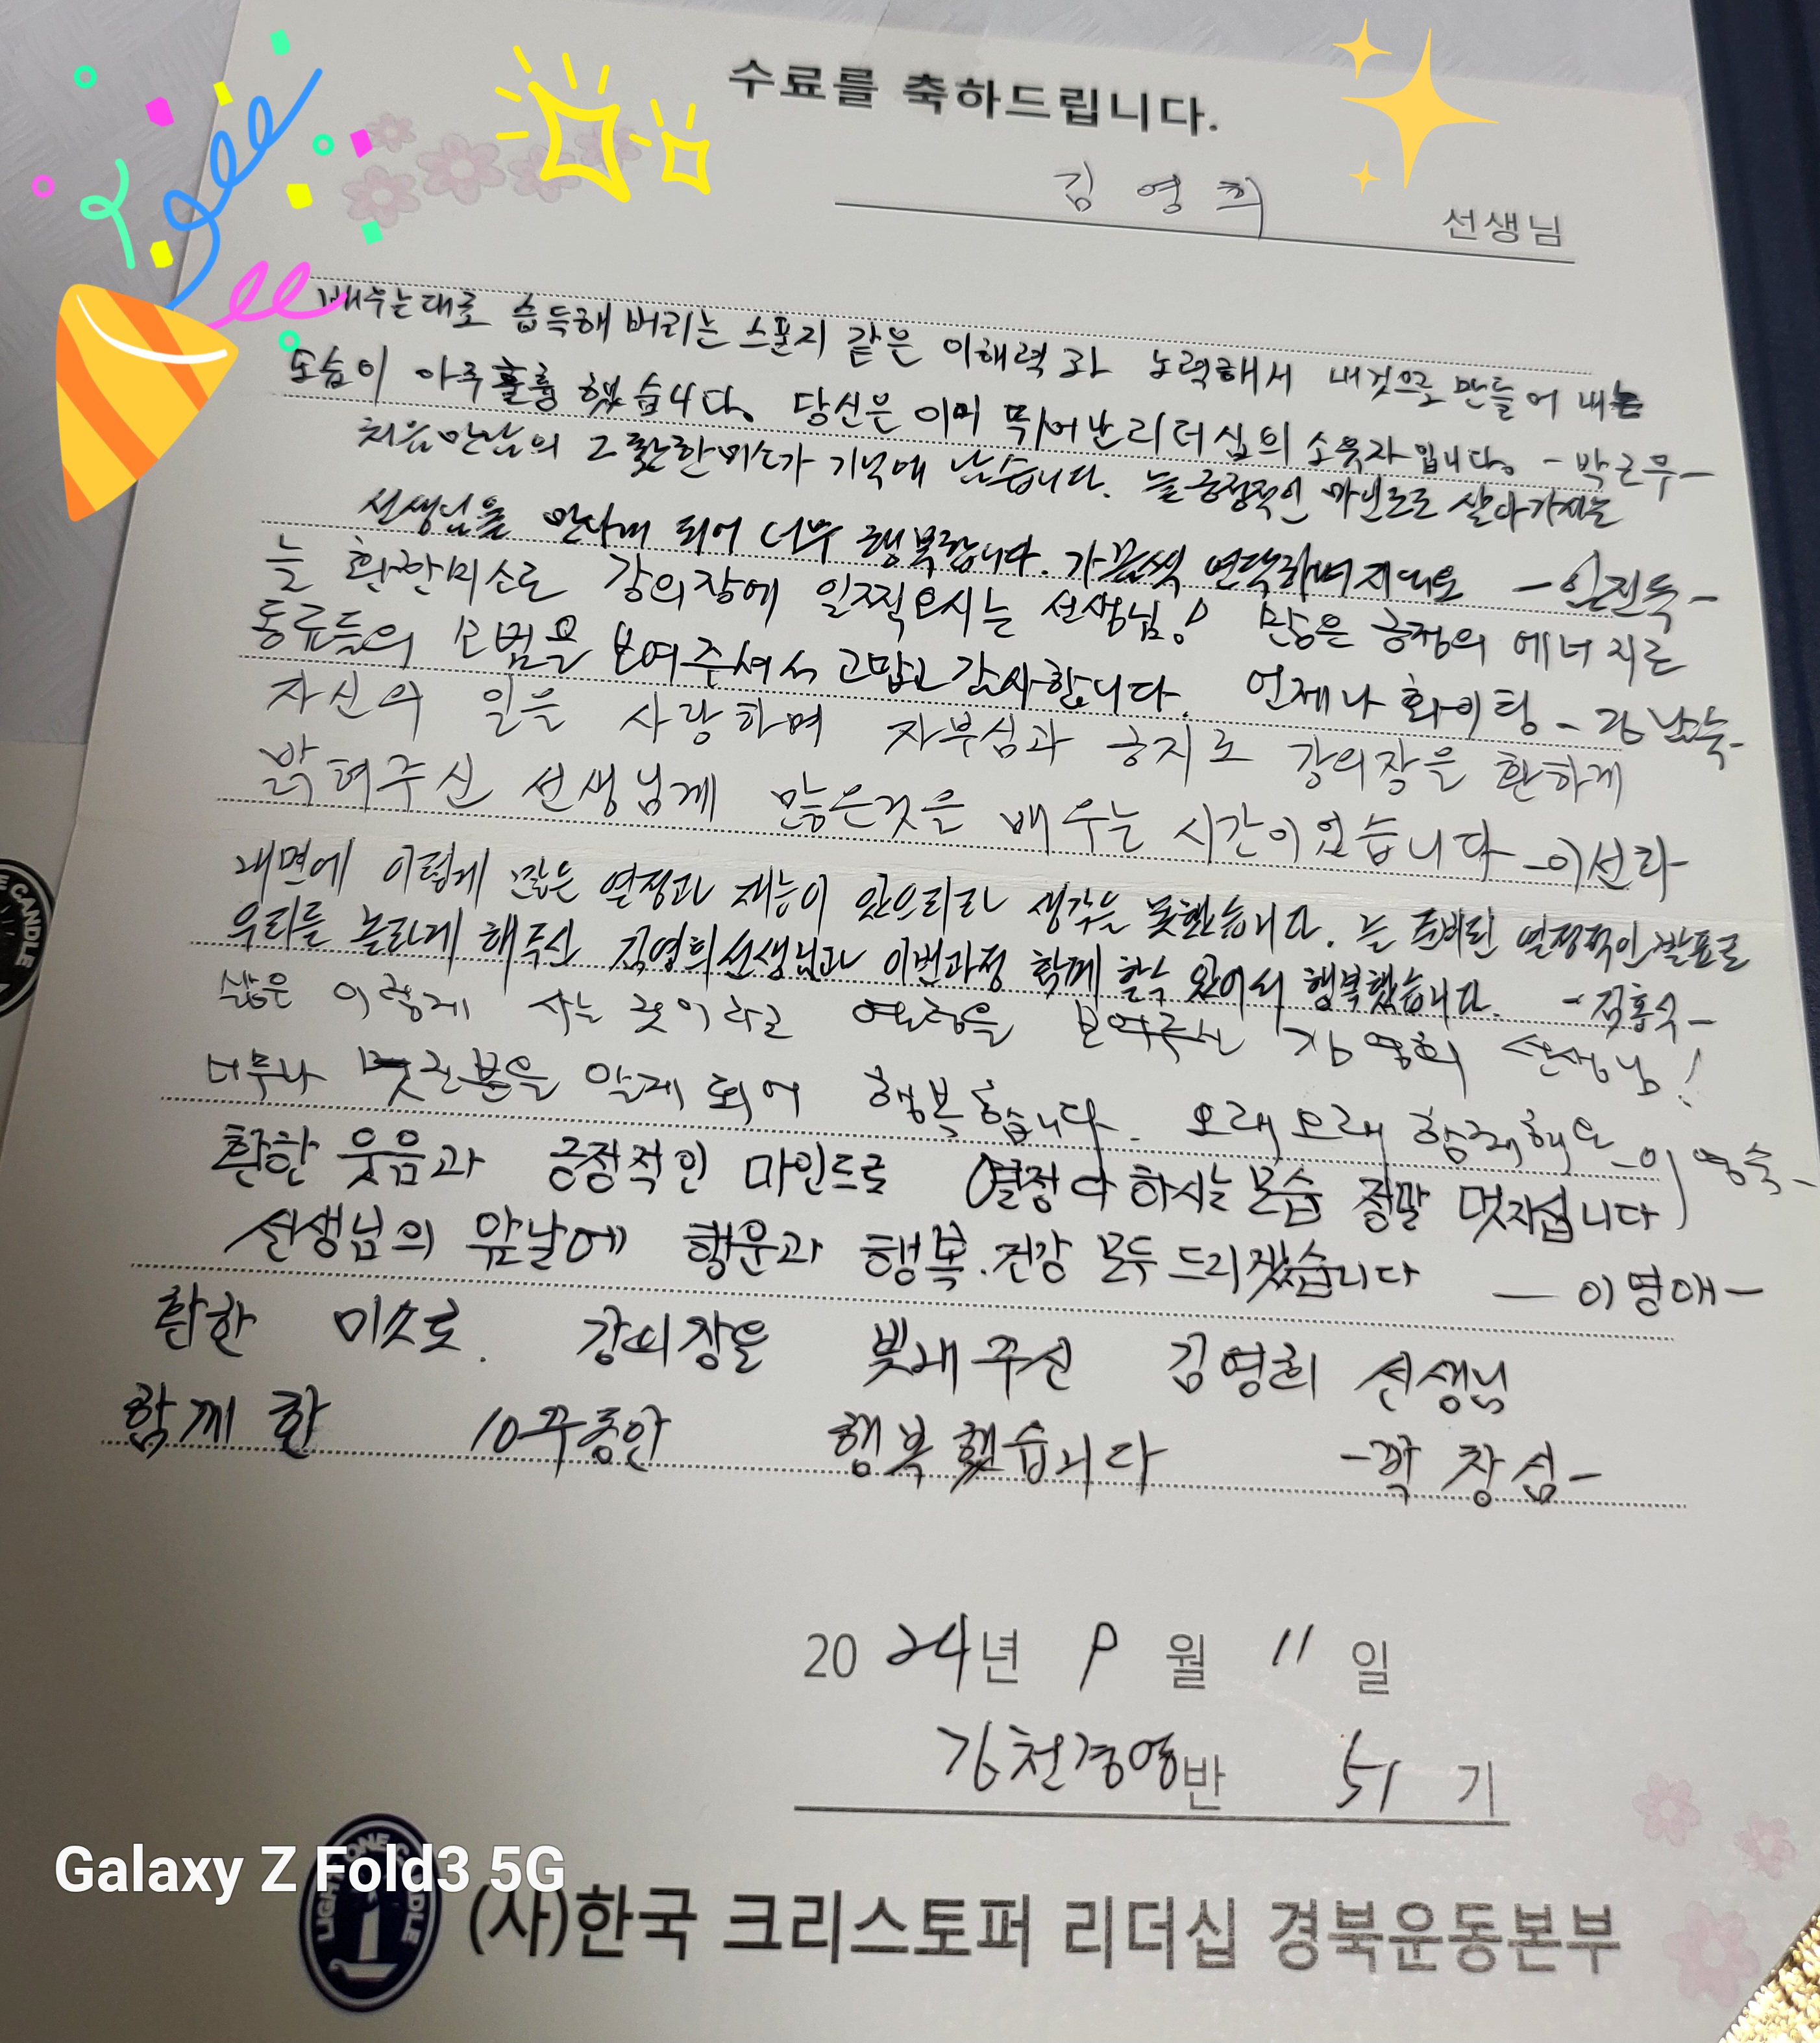 수료를 축하드립니다.
김영희 선생님
배우는대로 습득해 버리는 스폰지 같은 이해력과 노력해서 내것으로 만들어 내는
모습이 아주 훌륭했습니다. 당신은 이미 뛰어난 리더십의 소유자입니다. -박근무-
처음만남의 그 환한미소가 기억에 남습니다. 늘 긍정적인 마인드로 살아가시는
선생님을 만나게 되어 너무 행복합니다. 가끔씩 연락하며 지내요
늘 환한미소로 강의장에 일찍오시는 선생님! 많은 긍정의 에너지로
동료들의 모범을 보여주셔서 고맙고 감사합니다. 언제나 화이팅 -김남숙-
자신의 일을 사랑하며 자부심과 긍지로 강의장을 환하게
밝혀주신 선생님께 많은것을 배우는 시간이었습니다 -이선라-
내면에 이렇게 많은 열정과 재능이 있으리라 생각을 못했습니다. 늘 준비된 열정적인 발표로
우리를 놀라게 해주신 김영희선생님과 이번과정 함께 할수 있어서 행복했습니다. -김홍식-
삶은 이렇게 사는 것이라고 열정을 보여주신 김영희 선생님!
너무나 멋진분을 알게 되어 행복했습니다. 오래오래 함께해요 -이영숙-
환한 웃음과 긍정적인 마인드로 열정 다 하시는 모습 정말 멋지십니다
선생님의 앞날에 행운과 행복. 건강 모두 드리겠습니다 -이영애-
환한 미소로. 강의장을 빛내주신 김영희 선생님
함께 한 10주동안 행복했습니다 -곽창섬-
2024년 9월 11일
김천경영반 51기
(사)한국 크리스토퍼 리더십 경북운동본부
Galaxy Z Fold3 5G